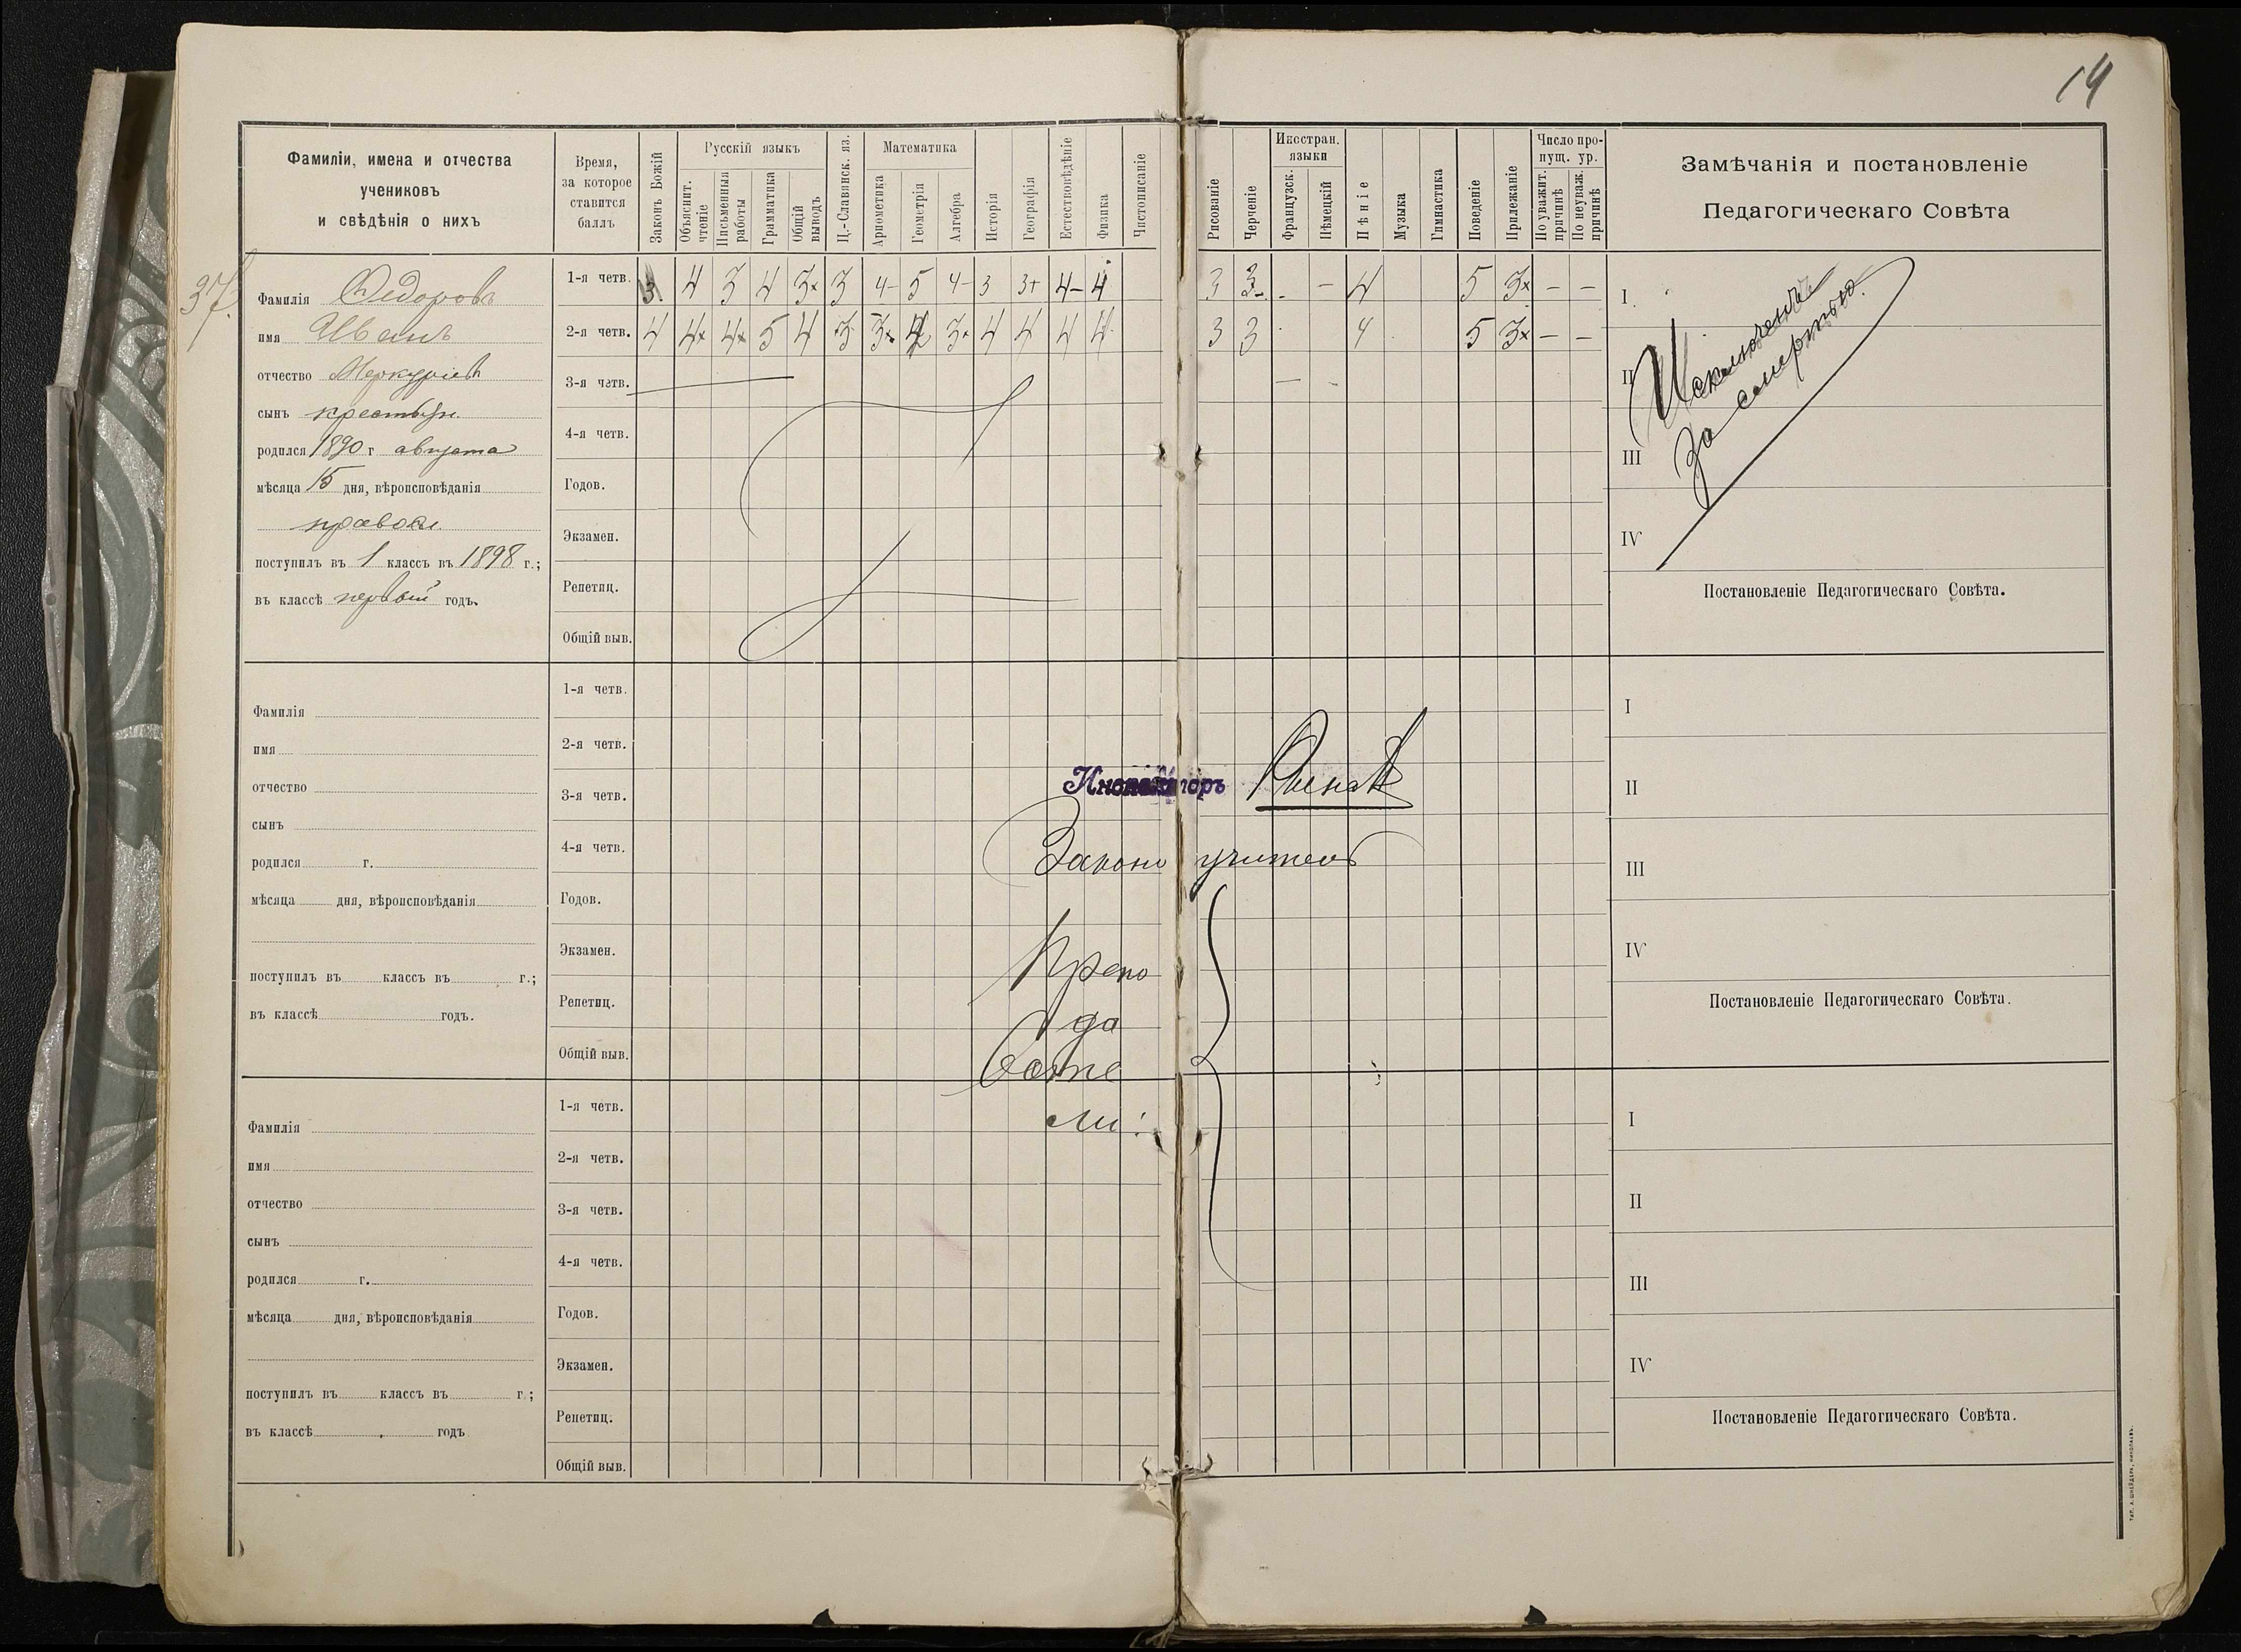 14
Фамиліи, имена и отчества
учениковъ
и свѣдѣнія о нихъ
Время,
за которое
ставится
баллъ
Законъ Божій
Русскій языкъ
Объяснит. чтеніе
Письменныя работы
Грамматика
Общій выводъ
Ц.-Славянск. яз.
Математика
Ариѳметика
Геометрія
Алгебра
Исторія
Географія
Естествовѣдѣніе
Физика
Чистописаніе
Рисованіе
Черченіе
Иностран. языки
Французск.
Нѣмецкій
Пѣніе
Музыка
Гимнастика
Поведеніе
Прилежаніе
Число пропущ. ур.
По уважит. причинѣ
По неуваж. причинѣ
Замѣчанія и постановленіе
Педагогическаго Совѣта
37.
Фамилія Ѳедоровъ
имя Иванъ
отчество Меркуріев
сынъ крестьян.
родился 1890 г августа
мѣсяца 15 дня, вѣроисповѣданія
правосл.
поступилъ въ 1 классъ въ 1898 г.;
въ классѣ первый годъ.
1-я четв. 3 4 3 4 3+ 3 4- 5 4- 3 3+ 4- 4 3 3- - - 4 5 3+ - -
2-я четв. 4 4+ 4+ 5 4 3 3+ 4 3+ 4 4 4 4 3 3 4 5 3+ - -
3-я четв. — —
4-я четв.
Годов.
Экзамен.
Репетиц.
Общій выв.
I.
II
III
IV
Исключенъ
за смертью.
Постановленіе Педагогическаго Совѣта.
Фамилія
имя
отчество
сынъ
родился г.
мѣсяца дня, вѣроисповѣданія
поступилъ въ классъ въ г.;
въ классѣ годъ.
1-я четв.
2-я четв.
3-я четв.
4-я четв.
Годов.
Экзамен.
Репетиц.
Общій выв.
Инспекторъ
Законоучитель
Препо
да
вате
ли:
I
II
III
IV
Постановленіе Педагогическаго Совѣта.
Фамилія
имя
отчество
сынъ
родился г.
мѣсяца дня, вѣроисповѣданія
поступилъ въ классъ въ г.;
въ классѣ годъ
1-я четв.
2-я четв.
3-я четв.
4-я четв.
Годов.
Экзамен.
Репетиц.
Общій выв.
I
II
III
IV
Постановленіе Педагогическаго Совѣта.
ТИП. А. ШНЕЙДЕРА, НИКОЛАЕВЪ.